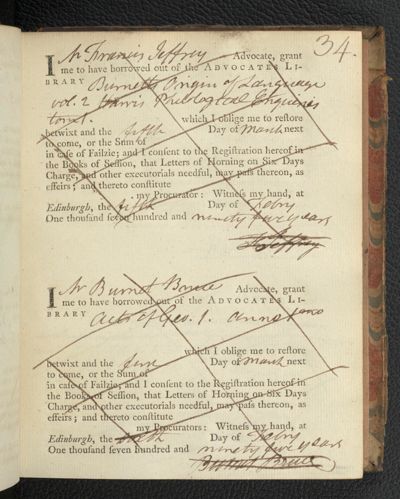 34.
I Mr Francis Jeffrey Advocate, grant
me to have borrowed out of the ADVOCATES LI-
BRARY Burnetts Origin of Language
vol. 2 Harris Philological Enquiries
which I oblige me to reſtore
betwixt and the fifth Day of March next
to come, or the Sum of
in caſe of Failzie; and I conſent to the Regiſtration hereof in
the Books of Seſſion, that Letters of Horning on Six Days
Charge, and other executorials needful, may paſs thereon, as
effeirs; and thereto conſtitute
my Procurator: Witneſs my hand, at
Edinburgh, the fifth Day of Febry
One thouſand ſeven hundred and ninety five years
Jeffrey
I Mr Burnet Bruce Advocate, grant
me to have borrowed out of the ADVOCATES LI-
BRARY Acts of Geo. 1. anno
which I oblige me to reſtore
betwixt and the Day of March next
to come, or the Sum of
in caſe of Failzie; and I conſent to the Regiſtration hereof in
the Books of Seſſion, that Letters of Horning on Six Days
Charge, and other executorials needful, may paſs thereon, as
effeirs; and thereto conſtitute
my Procurators: Witneſs my hand, at
Edinburgh, the Day of Febry
One thouſand ſeven hundred and ninety five years
Burnet Bruce